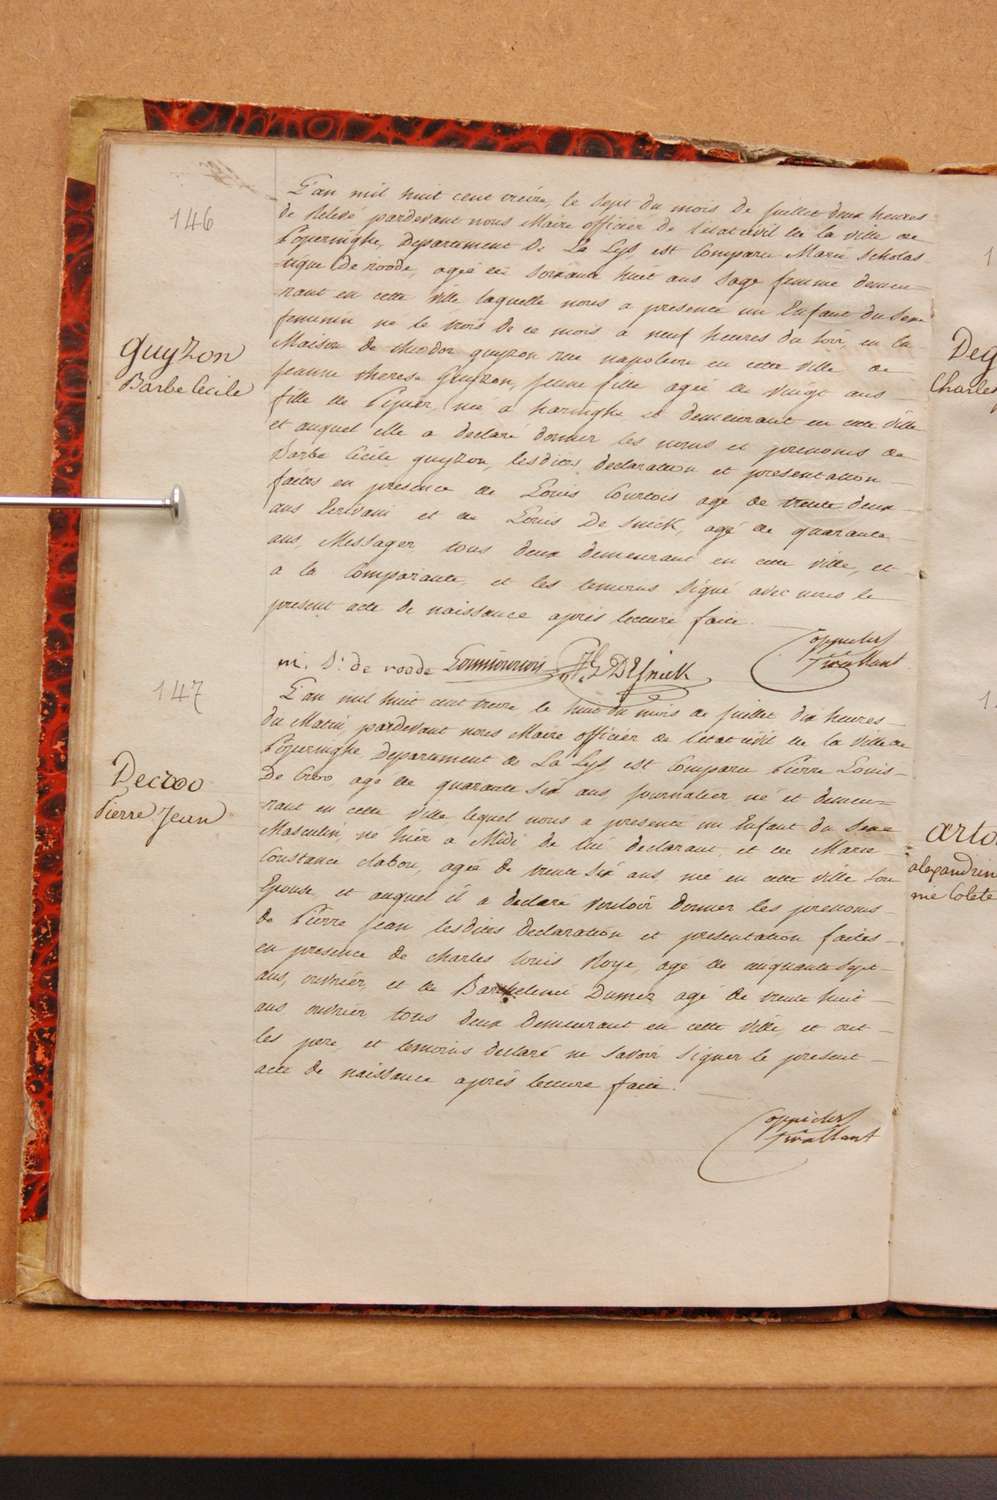 146
L'an mil huit cent treize, le sept du mois de Juillet deux heures
de Relevé pardevant nous Maire officier de l'état civil de la ville de
Poperinghe, Departement de La Lys est Comparu Marie Scholas
tique De roode, agée de soixante huit ans sage femme demeu-
rant en cette ville laquelle nous a presenté un Enfant du Sexe
feminin né le trois de ce mois à neuf heures du soir, en la
Maison de theodor guyzon rue napoleon en cette ville de
jeanne therese Guyzon, jeune fille agée de vingt ans
fille de Pierre, née a haringhe et demeurant en cette ville
et auquel elle a declaré donner les noms et prenoms de
Barbe Cécile guyzon, lesdites declaration et presentation
faites en presence de Louis Courtois agé de trente deux
ans Ecrivain et de Louis De Snick, agé de quarante
ans, Messager tous deux demeurant en cette ville, et
a la Comparante, et les temoins signé avec nous le
present acte de naissance après lecture faite.
guyzon
Barbe Cécile
m. S: de roode Courtois L DeSnick
147
L'an mil huit cent treize le huit du mois de Juillet dix heures
du Matin pardevant nous Maire officier de l'etat civil de la ville de
Poperinghe Departement de La Lys est Comparu Pierre Louis
De Croo, agé de quarante six ans, journalier né et demeu-
rant en cette ville lequel nous a presenté un Enfant du Sexe
Masculin, né hier a Midi de lui declarant, et de Marie
Constance clabou, agée de trente six ans née en cette ville son
Epouse, et auquel il a declaré vouloir donner les prenoms
de Pierre Jean lesdites declaration et presentation faites
en presence de charles louis Roye, agé de cinquante sept
ans, ouvrier, et de Barthelemi Dumez agé de trente huit
ans ouvrier tous deux demeurant en cette ville, et ont
les pere, et temoins declaré ne savoir signer le present
acte de naissance après lecture faite.
Decroo
Pierre Jean
Deg
Charles
arto
alexandrin
nie Colete